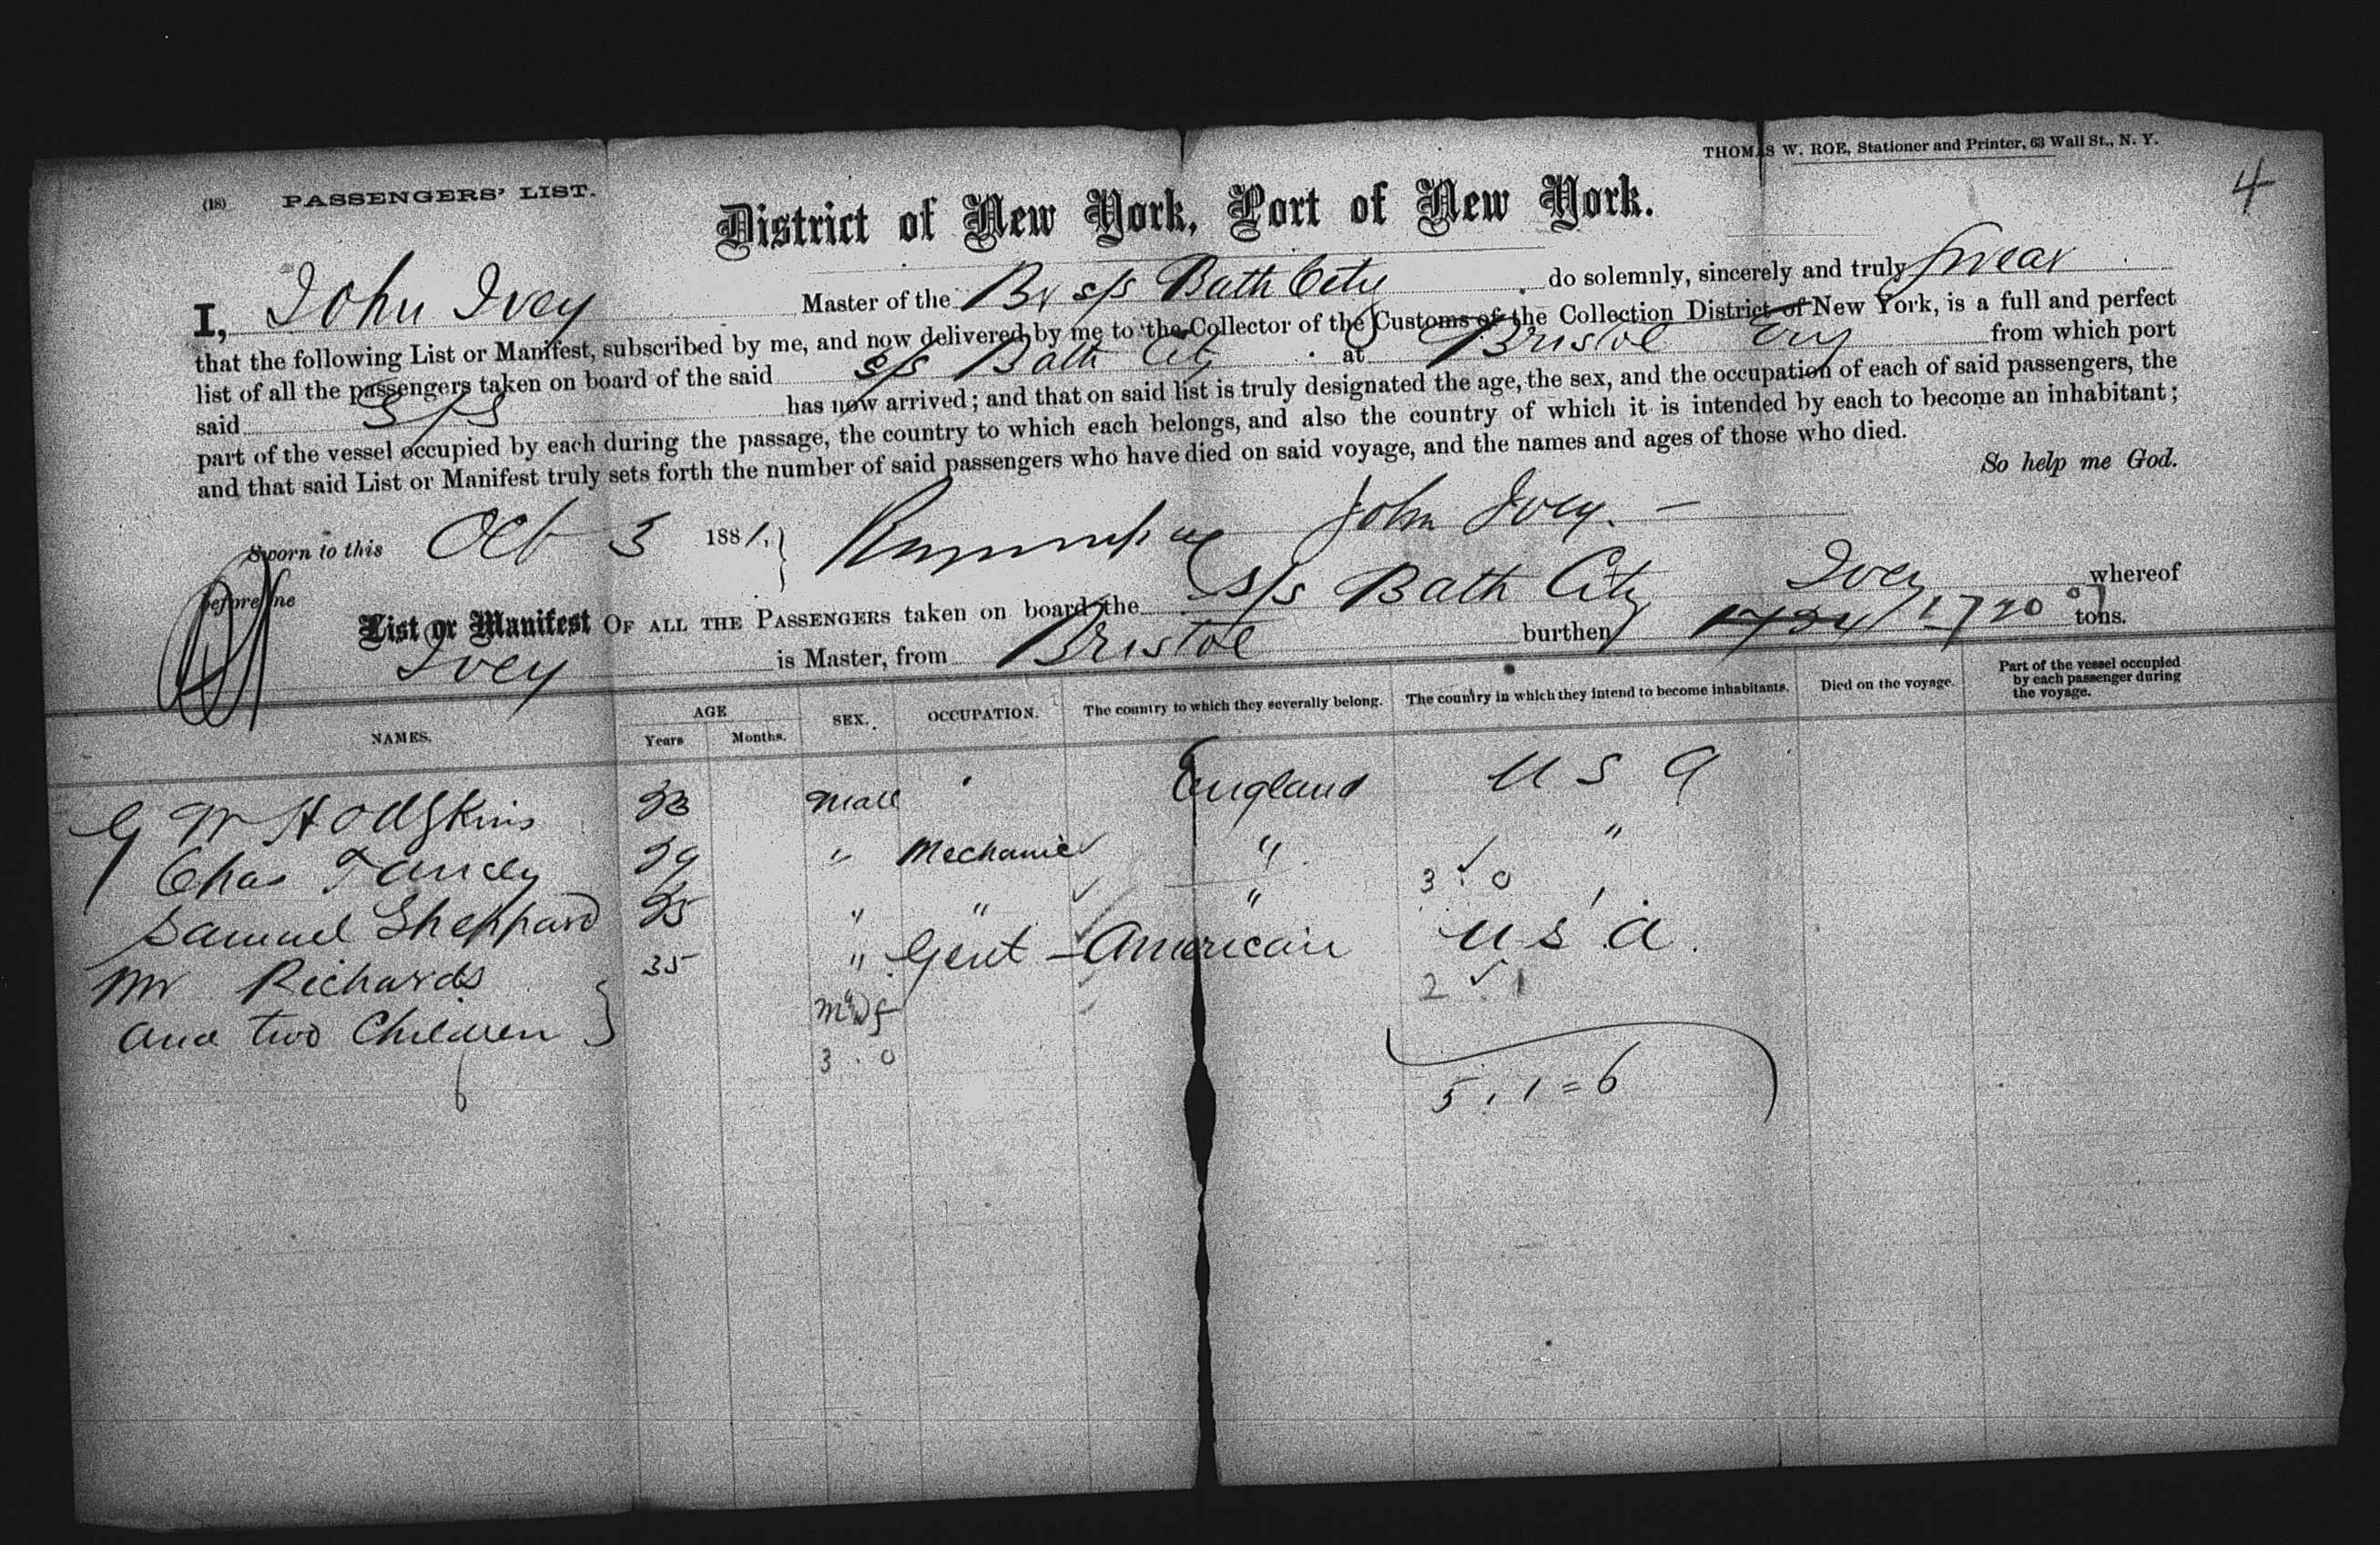 THOMAS W. ROE, Stationer and Printer, 63 Wall St., N. Y.
(18) PASSENGERS' LIST.
4
District of New York, Port of New York.
I, John Ivey Master of the Br s/s Bath City do solemnly, sincerely and truly swear
that the following List or Manifest, subscribed by me, and now delivered by me to the Collector of the Customs of the Collection District of New York, is a full and perfect
list of all the passengers taken on board of the said s/s Bath City at Bristol Eng from which port
said S/S has now arrived; and that on said list is truly designated the age, the sex, and the occupation of each of said passengers, the
part of the vessel occupied by each during the passage, the country to which each belongs, and also the country of which it is intended by each to become an inhabitant;
and that said List or Manifest truly sets forth the number of said passengers who have died on said voyage, and the names and ages of those who died.
So help me God.
Sworn to this Oct 3 1881, John Ivey.
before me
List or Manifest OF ALL THE PASSENGERS taken on board the s/s Bath City Ivey whereof
Ivey is Master, from Bristol burthen 1720 tons.
NAMES. AGE Years Months. SEX. OCCUPATION. The country to which they severally belong. The country in which they intend to become inhabitants. Died on the voyage. Part of the vessel occupied by each passenger during the voyage.
G W Hodgkins Male England U S A
Chas 29 " Mechanic " "
3 . 0
Samuel Sheppard " " "
Mr Richards 35 " Gent American U S A.
2 . 1
and two Children }
3 . 0
6
5 . 1 = 6